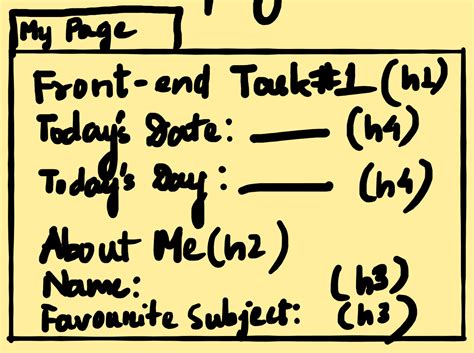 My Page
Front-end Task#1 (h1)
Today's Date: ____ (h4)
Today's Day: ____ (h4)
About Me (h2)
Name: (h3)
Favourite Subject: (h3)